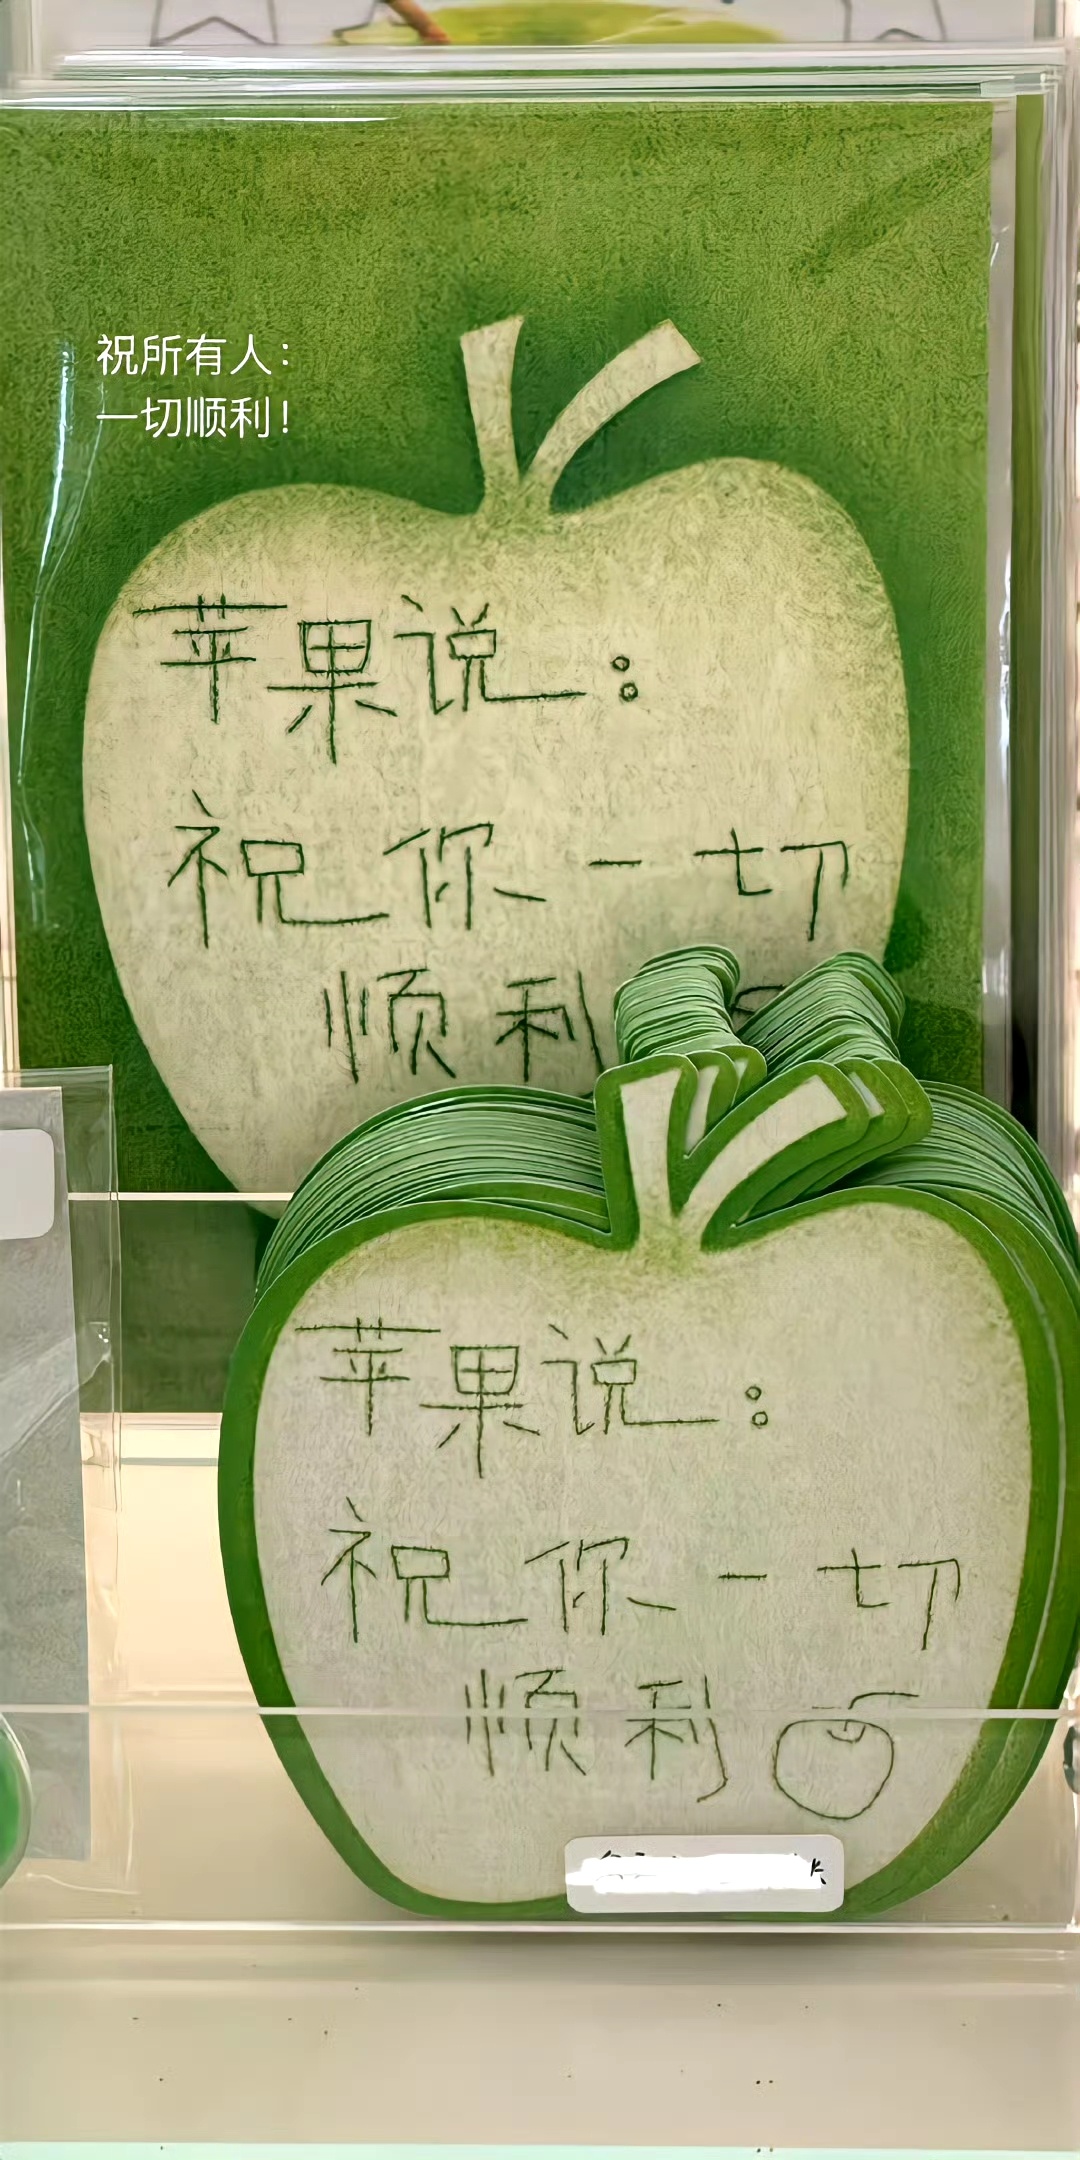 祝所有人：
一切顺利！
苹果说：
祝你一切
顺利
苹果说：
祝你一切
顺利